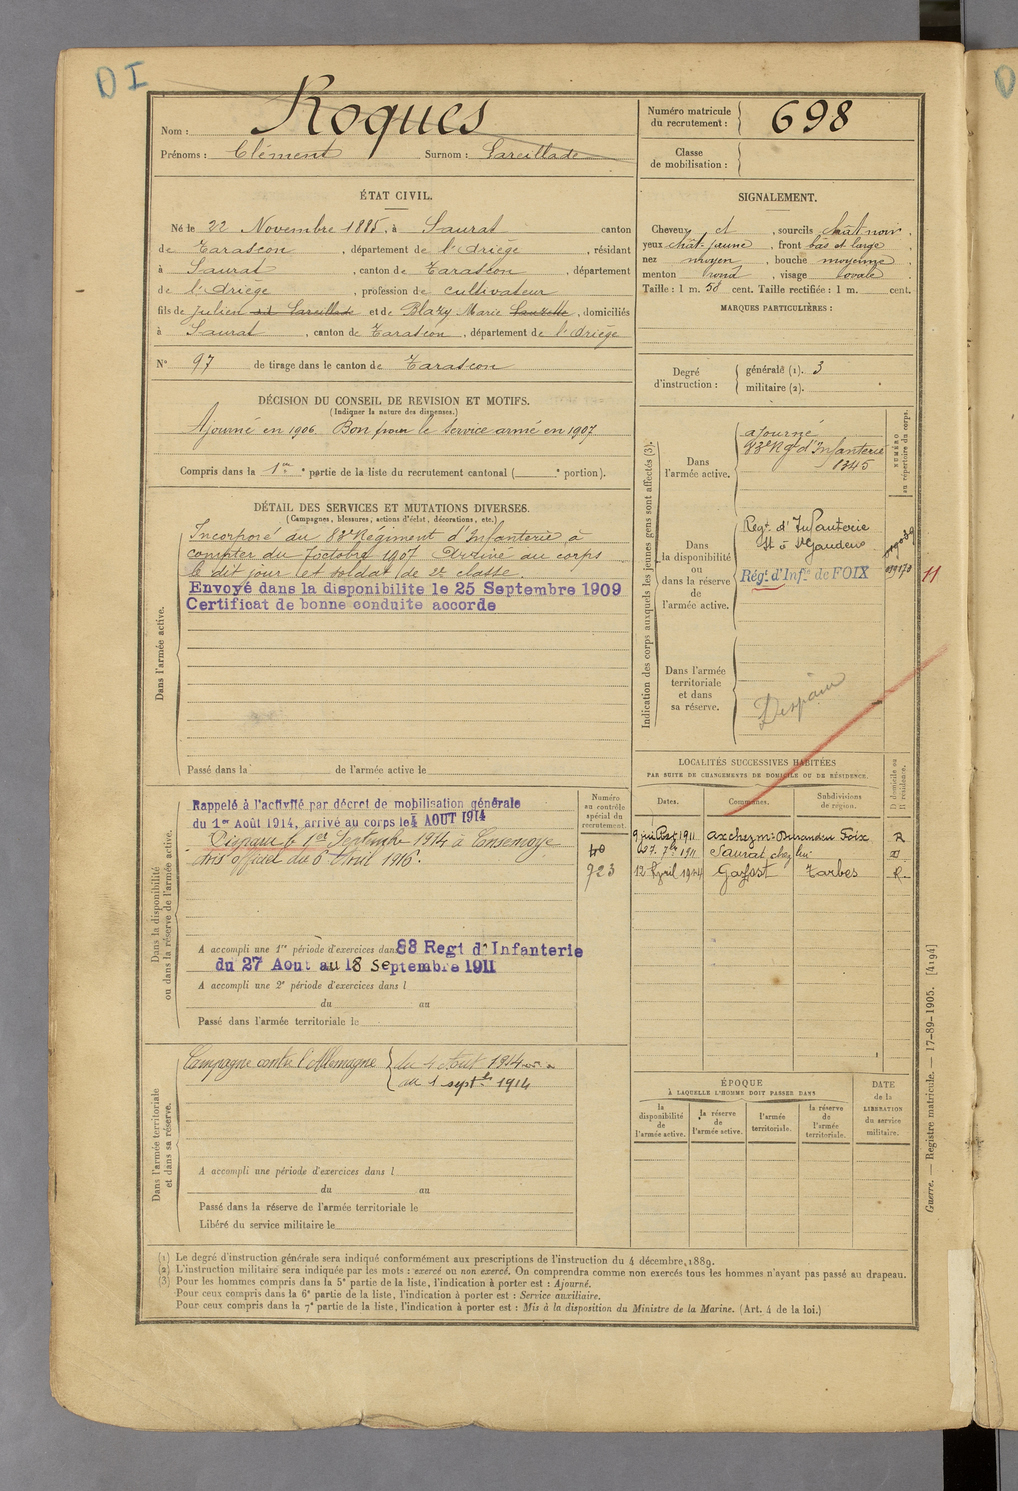 D I
Nom : Roques
Prénoms : Clément Surnom : Lareillade
Numéro matricule du recrutement : 698
Classe de mobilisation :
ÉTAT CIVIL.
Né le 22 Novembre 1885, à Saurat canton
de Tarascon, département de l'Ariège, résidant
à Saurat, canton de Tarascon, département
de l'Ariège, profession de cultivateur
fils de Julien dit Lareillade et de Blazy Marie, domiciliés
à Saurat, canton de Tarascon, département de l'Ariège
N° 97 de tirage dans le canton de Tarascon
SIGNALEMENT.
Cheveux et, sourcils chât noir,
yeux chât-jaune, front bas et large,
nez moyen, bouche moyenne,
menton rond, visage ovale
Taille : 1 m. 58 cent. Taille rectifiée : 1 m. cent.
MARQUES PARTICULIÈRES :
Degré d'instruction : générale (1). 3
militaire (2).
DÉCISION DU CONSEIL DE REVISION ET MOTIFS.
(Indiquer la nature des dispenses.)
Ajourné en 1906. Bon pour le service armé en 1907
Compris dans la 1re partie de la liste du recrutement cantonal ( e portion).
DÉTAIL DES SERVICES ET MUTATIONS DIVERSES.
(Campagnes, blessures, actions d'éclat, décorations, etc.)
Dans l'armée active.
Incorporé au 83e Régiment d'Infanterie à
compter du 7 octobre 1907. Arrivé au corps
le dit jour et soldat de 2e classe.
Envoyé dans la disponibilite le 25 Septembre 1909
Certificat de bonne conduite accorde
Passé dans la de l'armée active le
Indication des corps auxquels les jeunes gens sont affectés (3).
NUMÉRO au répertoire du corps.
Dans l'armée active.
ajourné
83e Rgt d'Infanterie
1345
Dans la disponibilité ou dans la réserve de l'armée active.
Regt. d'Infanterie
St Gaudens
Régt. d'Infie de FOIX
11
Dans l'armée territoriale et dans sa réserve.
Disparu
LOCALITÉS SUCCESSIVES HABITÉES
PAR SUITE DE CHANGEMENTS DE DOMICILE OU DE RÉSIDENCE.
Dates. Communes. Subdivisions de région. D domicile ou R résidence.
1911 Foix R
27 7bre 1911 Saurat, chez lui D
12 Avril 1924 Gazost Tarbes R
Dans la disponibilité ou dans la réserve de l'armée active.
Numéro au contrôle spécial du recrutement.
Rappelé à l'activité par décret de mobilisation générale
du 1er Août 1914, arrivé au corps le 4 AOUT 1914
Disparu le 1er Septembre 1914 à Consenvoye
avis officiel du 6 Avril 1916.
40
923
A accompli une 1re période d'exercices dans 88 Regt d'Infanterie
du 27 Aout au 18 Septembre 1911
A accompli une 2e période d'exercices dans l
du au
Passé dans l'armée territoriale le
Dans l'armée territoriale et dans sa réserve.
Campagne contre l'Allemagne du 4 Août 1914
au 1 septbre 1914
A accompli une période d'exercices dans l
du au
Passé dans la réserve de l'armée territoriale le
Libéré du service militaire le
ÉPOQUE
À LAQUELLE L'HOMME DOIT PASSER DANS
DATE de la LIBÉRATION du service militaire.
la disponibilité de l'armée active. la réserve de l'armée active. l'armée territoriale. la réserve de l'armée territoriale.
(1) Le degré d'instruction générale sera indiqué conformément aux prescriptions de l'instruction du 4 décembre 1889.
(2) L'instruction militaire sera indiquée par les mots : exercé ou non exercé. On comprendra comme non exercés tous les hommes n'ayant pas passé au drapeau.
(3) Pour les hommes compris dans la 5e partie de la liste, l'indication à porter est : Ajourné.
Pour ceux compris dans la 6e partie de la liste, l'indication à porter est : Service auxiliaire.
Pour ceux compris dans la 7e partie de la liste, l'indication à porter est : Mis à la disposition du Ministre de la Marine. (Art. 4 de la loi.)
Guerre. — Registre matricule. — 17-89-1905. [4194]